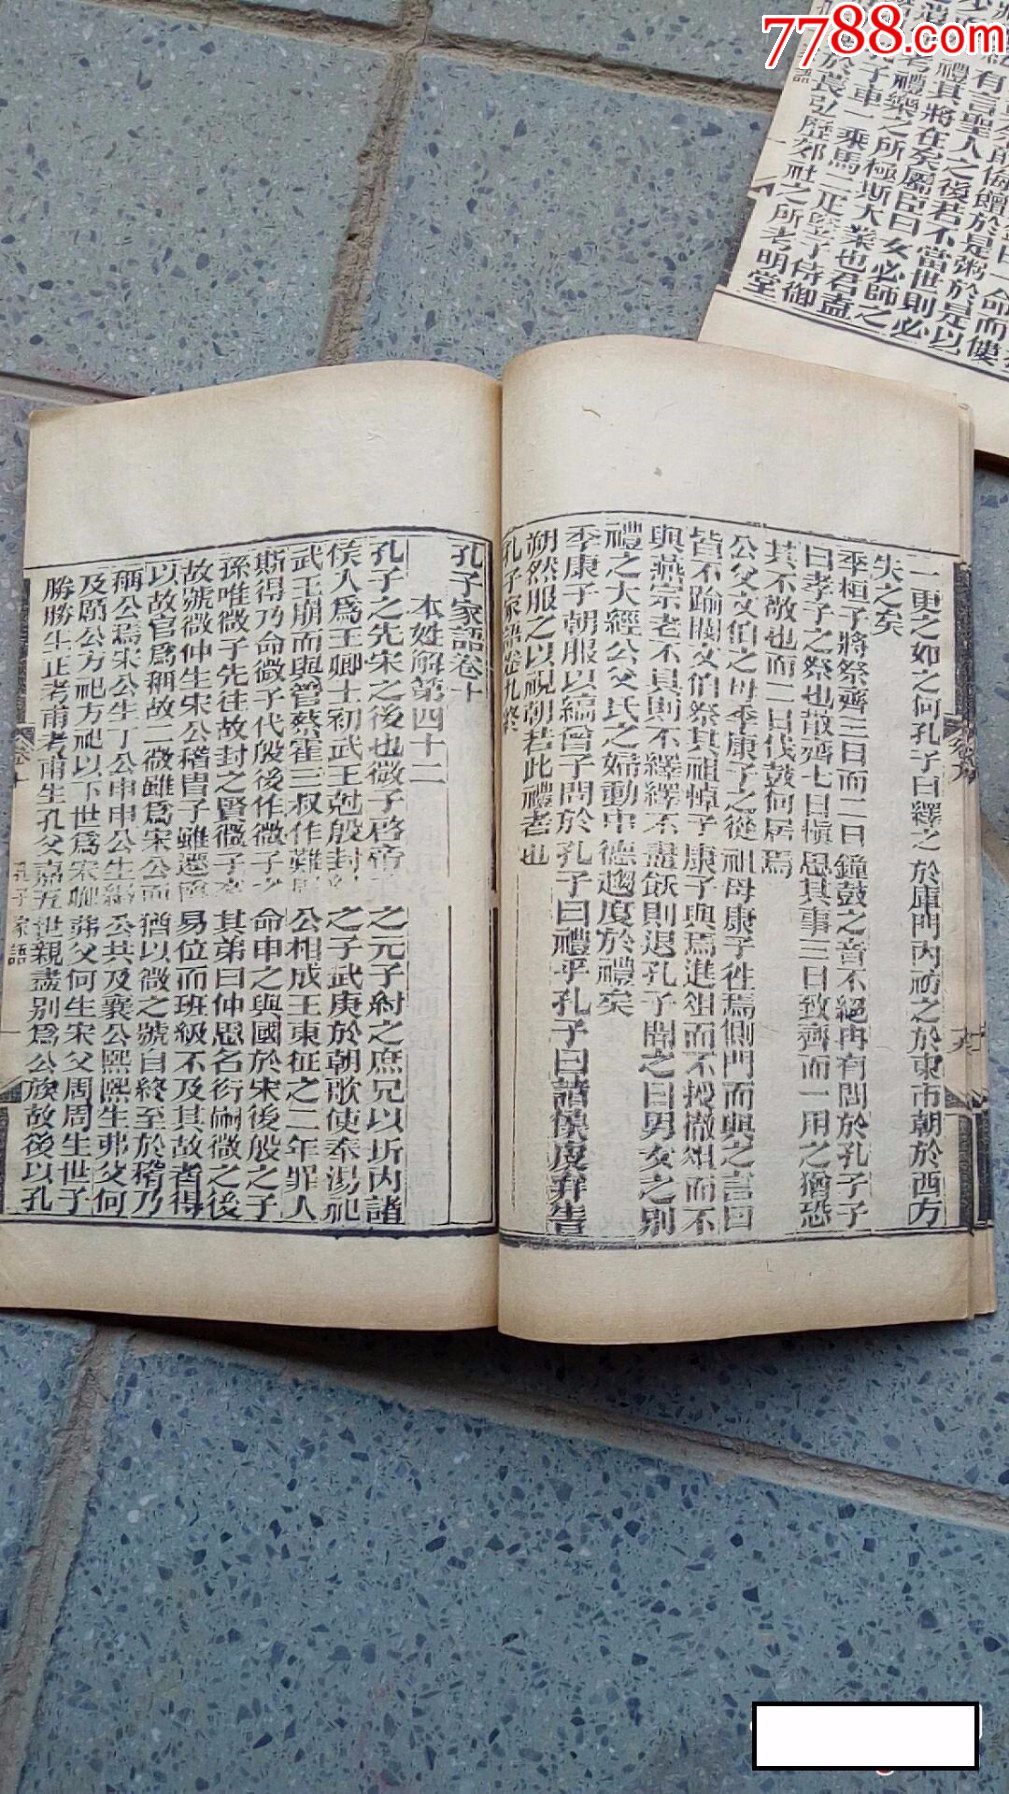 7788.com
一更之如之何孔子曰繹之於庫門內祊之於東市朝於西方
失之矣
季桓子將祭齊三日而二日鐘鼓之音不絕冉有問於孔子子
曰孝子之祭也散齊七日愼思其事三日致齊而一用之猶恐
其不敬也而二日伐鼓何居焉
公父文伯之母季康子之從祖母康子往焉側門而與之言曰
皆不踰閾文伯祭其祖悼子康子與焉進俎而不授撤俎而不
與燕宗老不具則不繹繹不盡飫則退孔子聞之曰男女之別
禮之大經公父氏之婦動中德趨度於禮矣
季康子朝服以縞曾子問於孔子曰禮乎孔子曰諸侯皮弁告
朔然服之以視朝若此禮者也
孔子家語卷九終
卷九
孔子家語卷十
本姓解第四十二
孔子之先宋之後也微子啓帝乙之元子紂之庶兄以圻內諸
侯入爲王卿士初武王尅殷封紂之子武庚於朝歌使奉湯祀
武王崩而與管蔡霍三叔作難周公相成王東征之二年罪人
斯得乃命微子代殷後作微子之命申之與國於宋後殷之子
孫唯微子先往故封之賢微子之其弟曰仲思名衍嗣微之後
故號微仲生宋公稽胄子雖遷爵易位而班級不及其故者得
以故官爲稱故二微雖爲宋公而猶以微之號自終至於稽乃
稱公焉宋公生丁公申申公生緡公共及襄公熙熙生弗父何
及厲公方祀方祀以下世爲宋卿弗父何生宋父周周生世子
勝勝生正考甫考甫生孔父嘉五世親盡別爲公族故後以孔
卷十
孔子家語
一
有言聖人之後若不當世則必
禮其將在矣屬臣曰女必師之
禮樂之所極斯大業也君盍
子車一乘馬二疋豎子侍御
於萇弘歷郊社之所考明堂